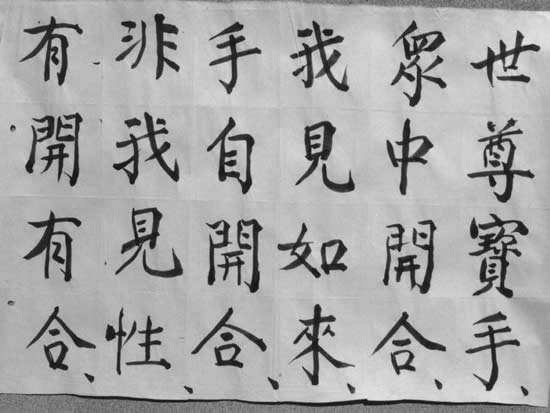 世尊寶手、
眾中開合、
我見如來、
手自開合、
非我見性、
有開有合、